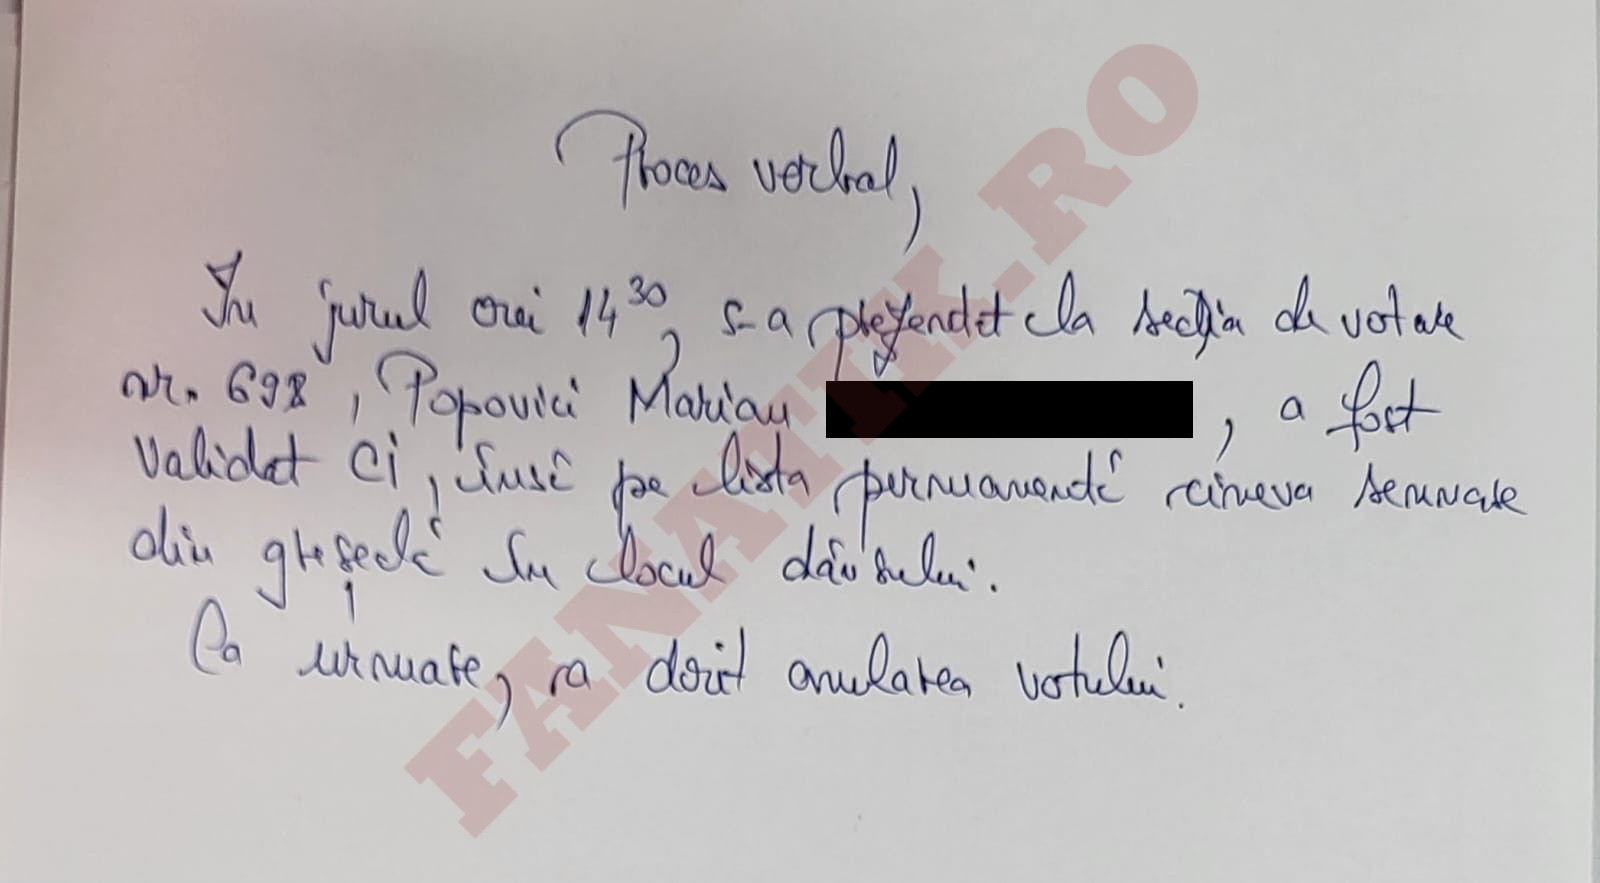 Proces verbal,
In jurul orei 14³⁰, s-a prezentat la secția de votare
nr. 698, Popovici Marian , a fost
validat CI, însă pe lista permanentă cineva semnase
din greșeală în locul dânsului.
Ca urmare, sa dorit anularea votului.
FANATIK.RO